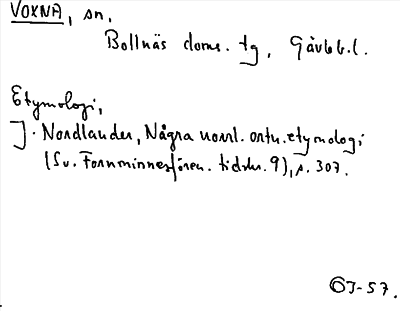 VOXNA, sn,
Bollnäs doms. tg, Gävleb. l.
Etymologi,
J. Nordlander, Några norrl. ortn. etymologi
(Sv. Fornminnesfören. tidskr. 9), s. 307.
OJ-57.